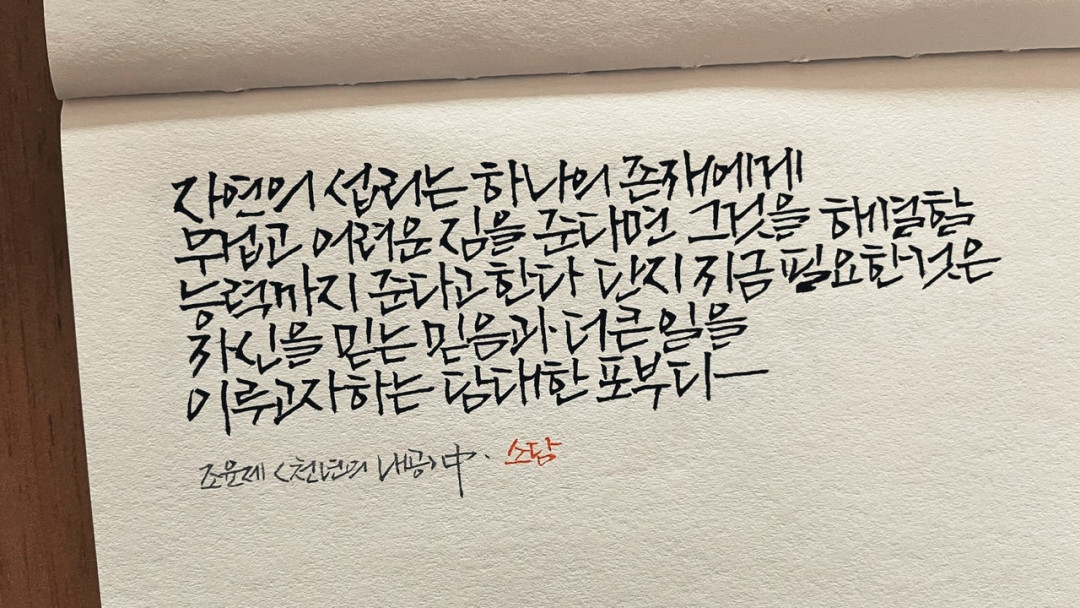 자연의 섭리는 하나의 존재에게
무겁고 어려운 짐을 준다면 그것을 해결할
능력까지 준다고한다 단지 지금 필요한것은
자신을 믿는 믿음과 더 큰 일을
이루고자하는 담대한 포부다—
조윤제 <천년의 내공> 中. 소담